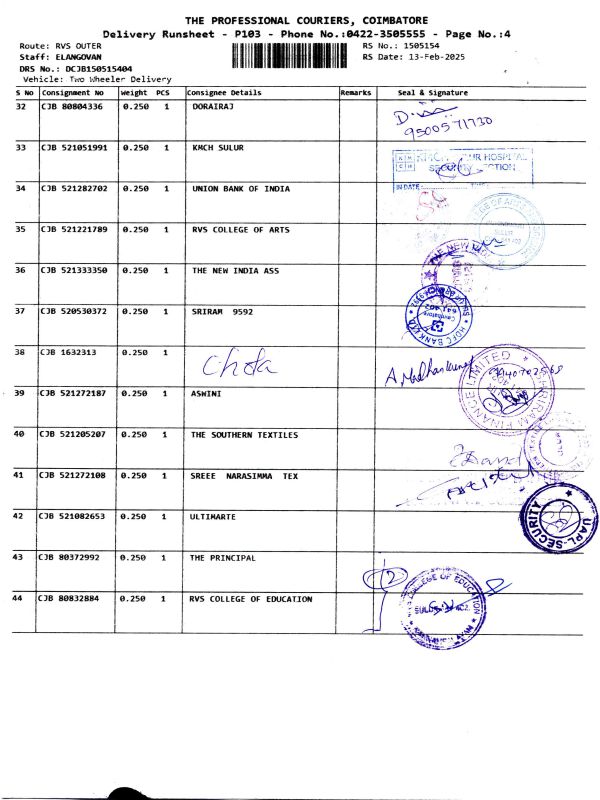 THE PROFESSIONAL COURIERS, COIMBATORE
Delivery Runsheet - P103 - Phone No.:0422-3505555 - Page No.:4
Route: RVS OUTER RS No.: 1505154
Staff: ELANGOVAN RS Date: 13-Feb-2025
DRS No.: DCJB150515404
Vehicle: Two Wheeler Delivery
S No Consignment No Weight PCS Consignee Details Remarks Seal & Signature
32 CJB 80804336 0.250 1 DORAIRAJ
9500571730
33 CJB 521051991 0.250 1 KMCH SULUR
KMCH HOSPITAL
SECURITY SECTION
IN DATE
34 CJB 521282702 0.250 1 UNION BANK OF INDIA
35 CJB 521221789 0.250 1 RVS COLLEGE OF ARTS
36 CJB 521333350 0.250 1 THE NEW INDIA ASS
THE NEW
37 CJB 520530372 0.250 1 SRIRAM 9592
HDFC BANK LTD
38 CJB 1632313 0.250 1 Chola
LIMITED
SHRIRAM FINANCE
39 CJB 521272187 0.250 1 ASWINI
40 CJB 521205207 0.250 1 THE SOUTHERN TEXTILES
41 CJB 521272108 0.250 1 SREEE NARASIMMA TEX
42 CJB 521082653 0.250 1 ULTIMARTE
UAPL-SECURITY
43 CJB 80372992 0.250 1 THE PRINCIPAL
44 CJB 80832884 0.250 1 RVS COLLEGE OF EDUCATION
COLLEGE OF EDUCATION